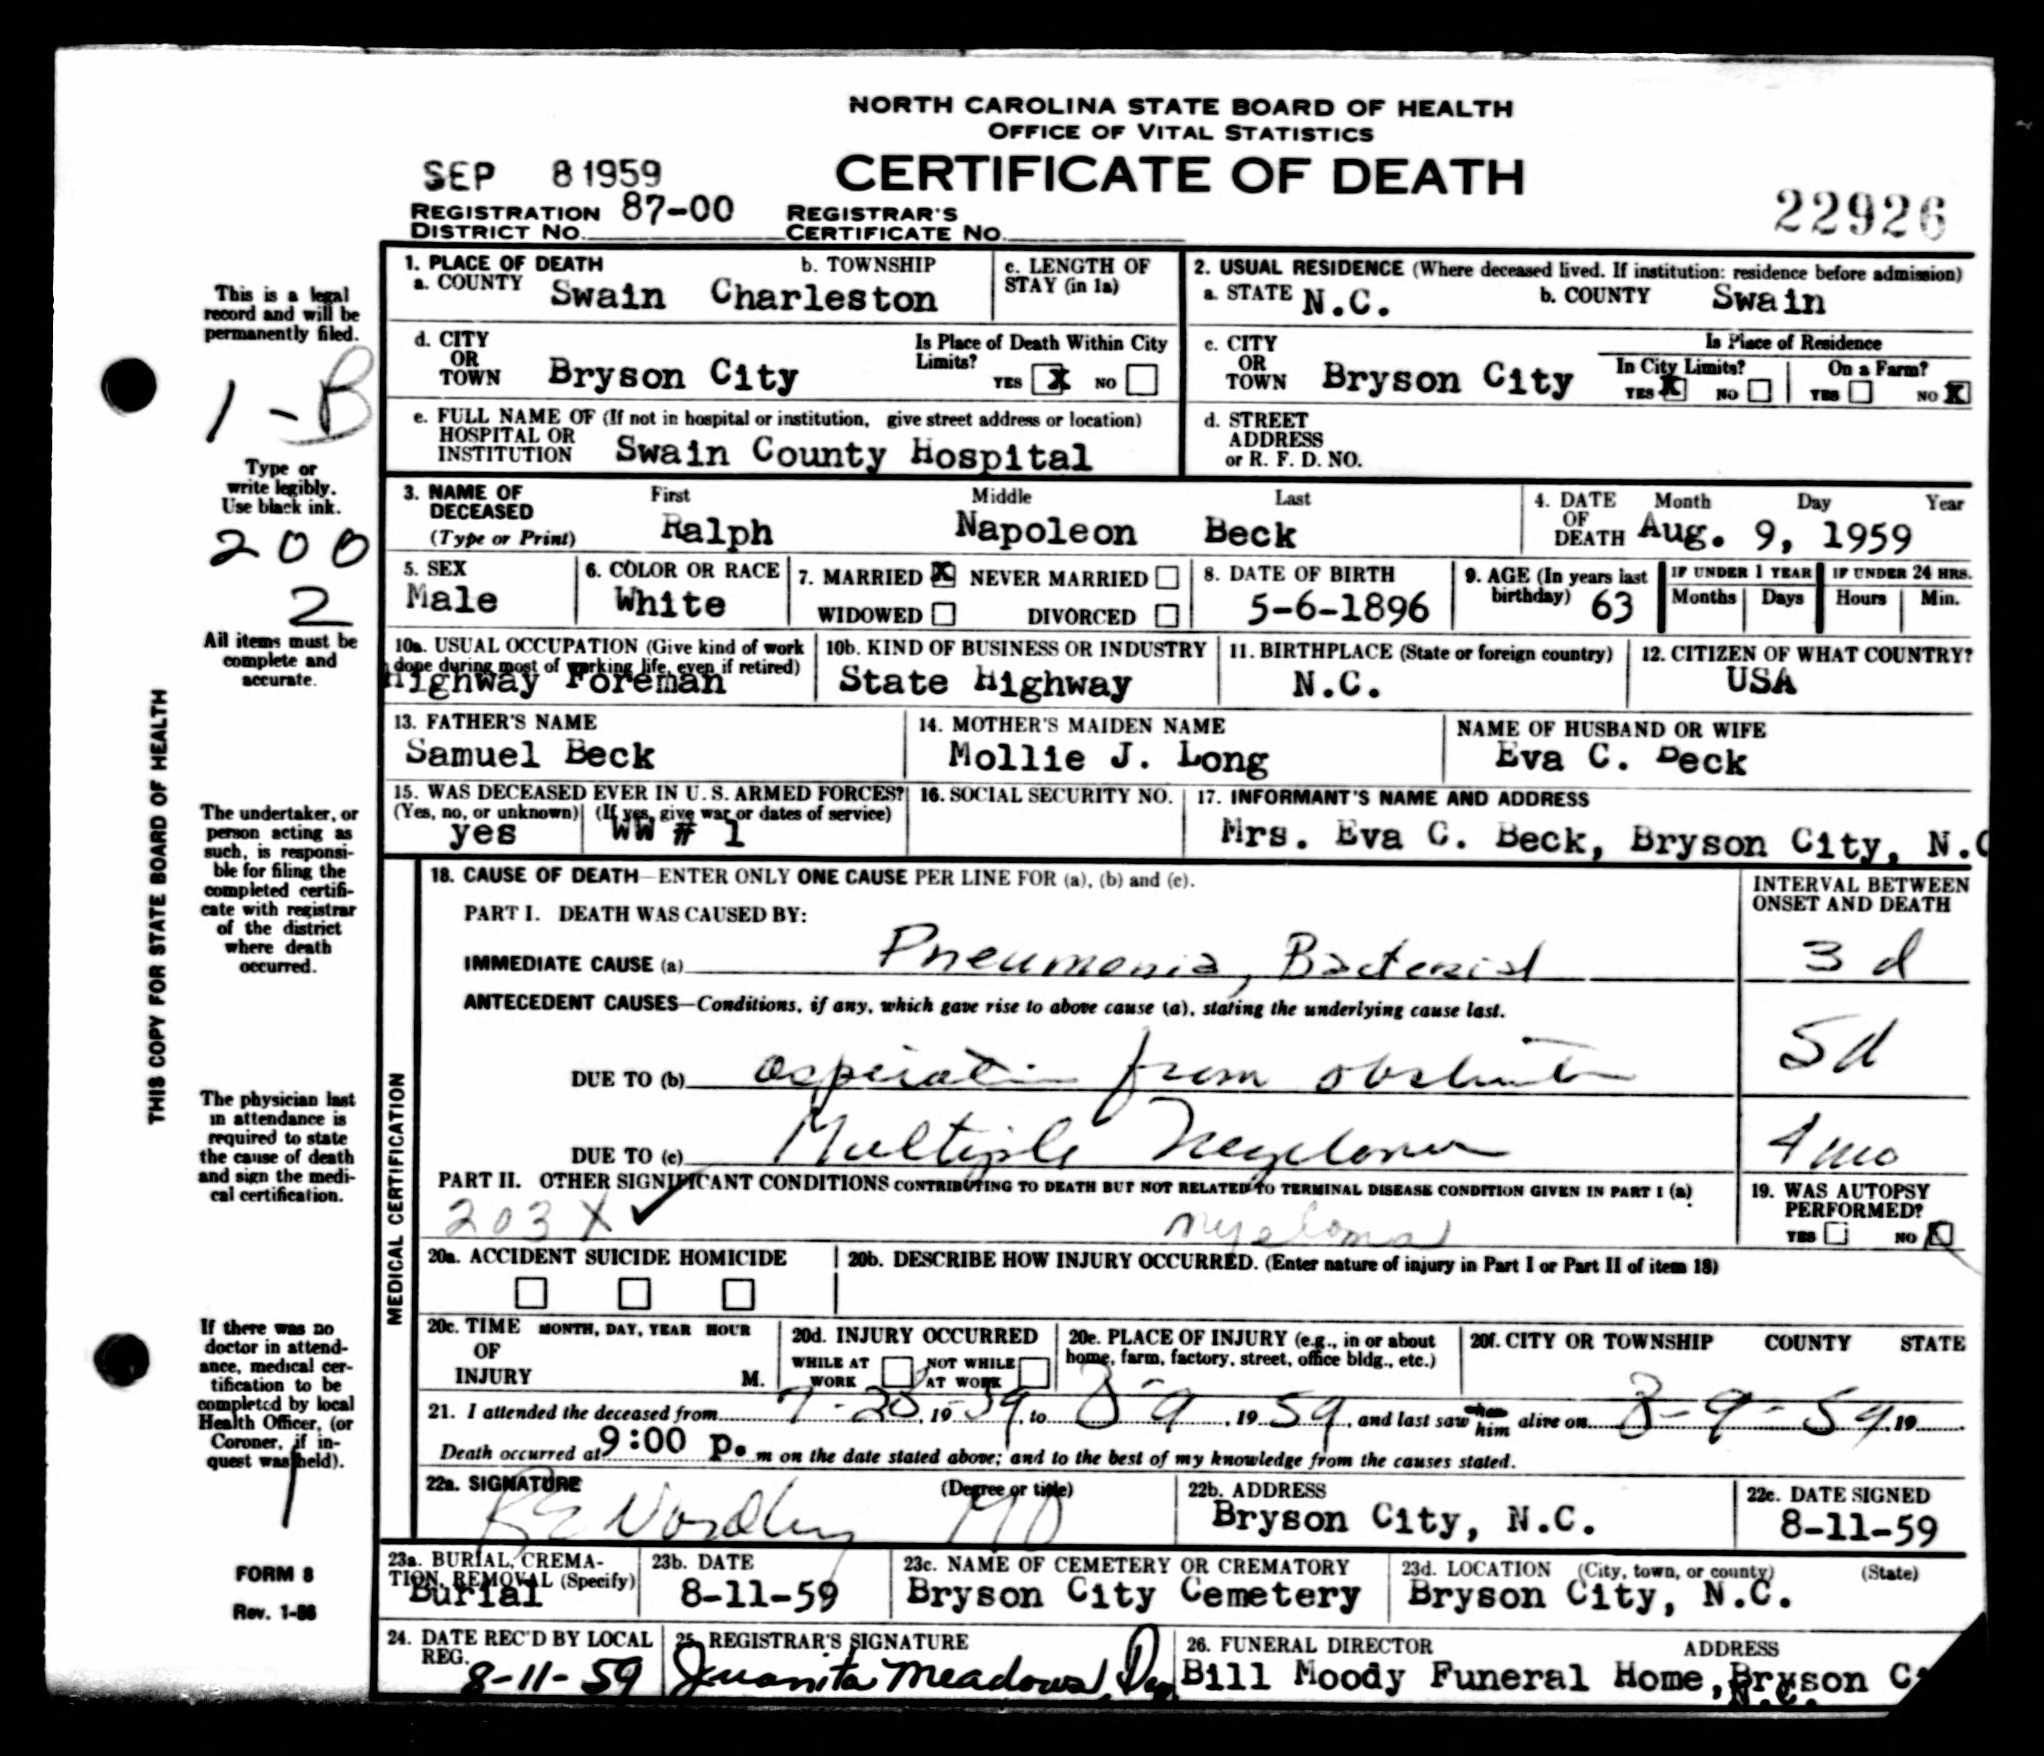 NORTH CAROLINA STATE BOARD OF HEALTH
OFFICE OF VITAL STATISTICS
SEP 8 1959
CERTIFICATE OF DEATH
22926
REGISTRATION DISTRICT NO. 87-00 REGISTRAR'S CERTIFICATE NO.
This is a legal
record and will be
permanently filed.
1-B
Type or
write legibly.
Use black ink.
200
2
All items must be
complete and
accurate.
THIS COPY FOR STATE BOARD OF HEALTH
The undertaker, or
person acting as
such, is responsi-
ble for filing the
completed certifi-
cate with registrar
of the district
where death
occurred.
The physician last
in attendance is
required to state
the cause of death
and sign the medi-
cal certification.
If there was no
doctor in attend-
ance, medical cer-
tification to be
completed by local
Health Officer, (or
Coroner, if in-
quest was held).
1
FORM 8
Rev. 1-56
1. PLACE OF DEATH
a. COUNTY Swain
b. TOWNSHIP Charleston
c. LENGTH OF STAY (in 1a)
2. USUAL RESIDENCE (Where deceased lived. If institution: residence before admission)
a. STATE N.C. b. COUNTY Swain
d. CITY OR TOWN Bryson City
Is Place of Death Within City Limits? YES X NO
c. CITY OR TOWN Bryson City
Is Place of Residence
In City Limits? YES X NO
On a Farm? YES NO X
e. FULL NAME OF (If not in hospital or institution, give street address or location)
HOSPITAL OR INSTITUTION Swain County Hospital
d. STREET ADDRESS or R. F. D. NO.
3. NAME OF DECEASED (Type or Print)
First Middle Last
Ralph Napoleon Beck
4. DATE OF DEATH Month Day Year
Aug. 9, 1959
5. SEX
Male
6. COLOR OR RACE
White
7. MARRIED X NEVER MARRIED
WIDOWED DIVORCED
8. DATE OF BIRTH
5-6-1896
9. AGE (In years last birthday) 63
IF UNDER 1 YEAR
Months Days
IF UNDER 24 HRS.
Hours Min.
10a. USUAL OCCUPATION (Give kind of work done during most of working life, even if retired)
Highway Foreman
10b. KIND OF BUSINESS OR INDUSTRY
State Highway
11. BIRTHPLACE (State or foreign country)
N.C.
12. CITIZEN OF WHAT COUNTRY?
USA
13. FATHER'S NAME
Samuel Beck
14. MOTHER'S MAIDEN NAME
Mollie J. Long
NAME OF HUSBAND OR WIFE
Eva C. Beck
15. WAS DECEASED EVER IN U. S. ARMED FORCES?
(Yes, no, or unknown) (If yes, give war or dates of service)
yes WW # 1
16. SOCIAL SECURITY NO.
17. INFORMANT'S NAME AND ADDRESS
Mrs. Eva C. Beck, Bryson City, N.C
MEDICAL CERTIFICATION
18. CAUSE OF DEATH—ENTER ONLY ONE CAUSE PER LINE FOR (a), (b) and (c).
INTERVAL BETWEEN ONSET AND DEATH
PART I. DEATH WAS CAUSED BY:
IMMEDIATE CAUSE (a) Pneumonia, Bacterial 3 d
ANTECEDENT CAUSES—Conditions, if any, which gave rise to above cause (a), stating the underlying cause last.
DUE TO (b) aspiration from obstruction 5d
DUE TO (c) Multiple Myeloma 4 mo
PART II. OTHER SIGNIFICANT CONDITIONS CONTRIBUTING TO DEATH BUT NOT RELATED TO TERMINAL DISEASE CONDITION GIVEN IN PART I (a)
203X ✓ myeloma
19. WAS AUTOPSY PERFORMED?
YES NO X
20a. ACCIDENT SUICIDE HOMICIDE
20b. DESCRIBE HOW INJURY OCCURRED. (Enter nature of injury in Part I or Part II of item 18)
20c. TIME OF INJURY MONTH, DAY, YEAR HOUR M.
20d. INJURY OCCURRED
WHILE AT WORK NOT WHILE AT WORK
20e. PLACE OF INJURY (e.g., in or about home, farm, factory, street, office bldg., etc.)
20f. CITY OR TOWNSHIP COUNTY STATE
21. I attended the deceased from 7-28, 1959, to 8-9, 1959, and last saw him alive on 8-9-59, 19
Death occurred at 9:00 p. m on the date stated above; and to the best of my knowledge from the causes stated.
22a. SIGNATURE (Degree or title)
MD
22b. ADDRESS
Bryson City, N.C.
22c. DATE SIGNED
8-11-59
23a. BURIAL, CREMATION, REMOVAL (Specify)
Burial
23b. DATE
8-11-59
23c. NAME OF CEMETERY OR CREMATORY
Bryson City Cemetery
23d. LOCATION (City, town, or county) (State)
Bryson City, N.C.
24. DATE REC'D BY LOCAL REG.
8-11-59
25. REGISTRAR'S SIGNATURE
Juanita Meadows, Dep
26. FUNERAL DIRECTOR ADDRESS
Bill Moody Funeral Home, Bryson C
N.C.